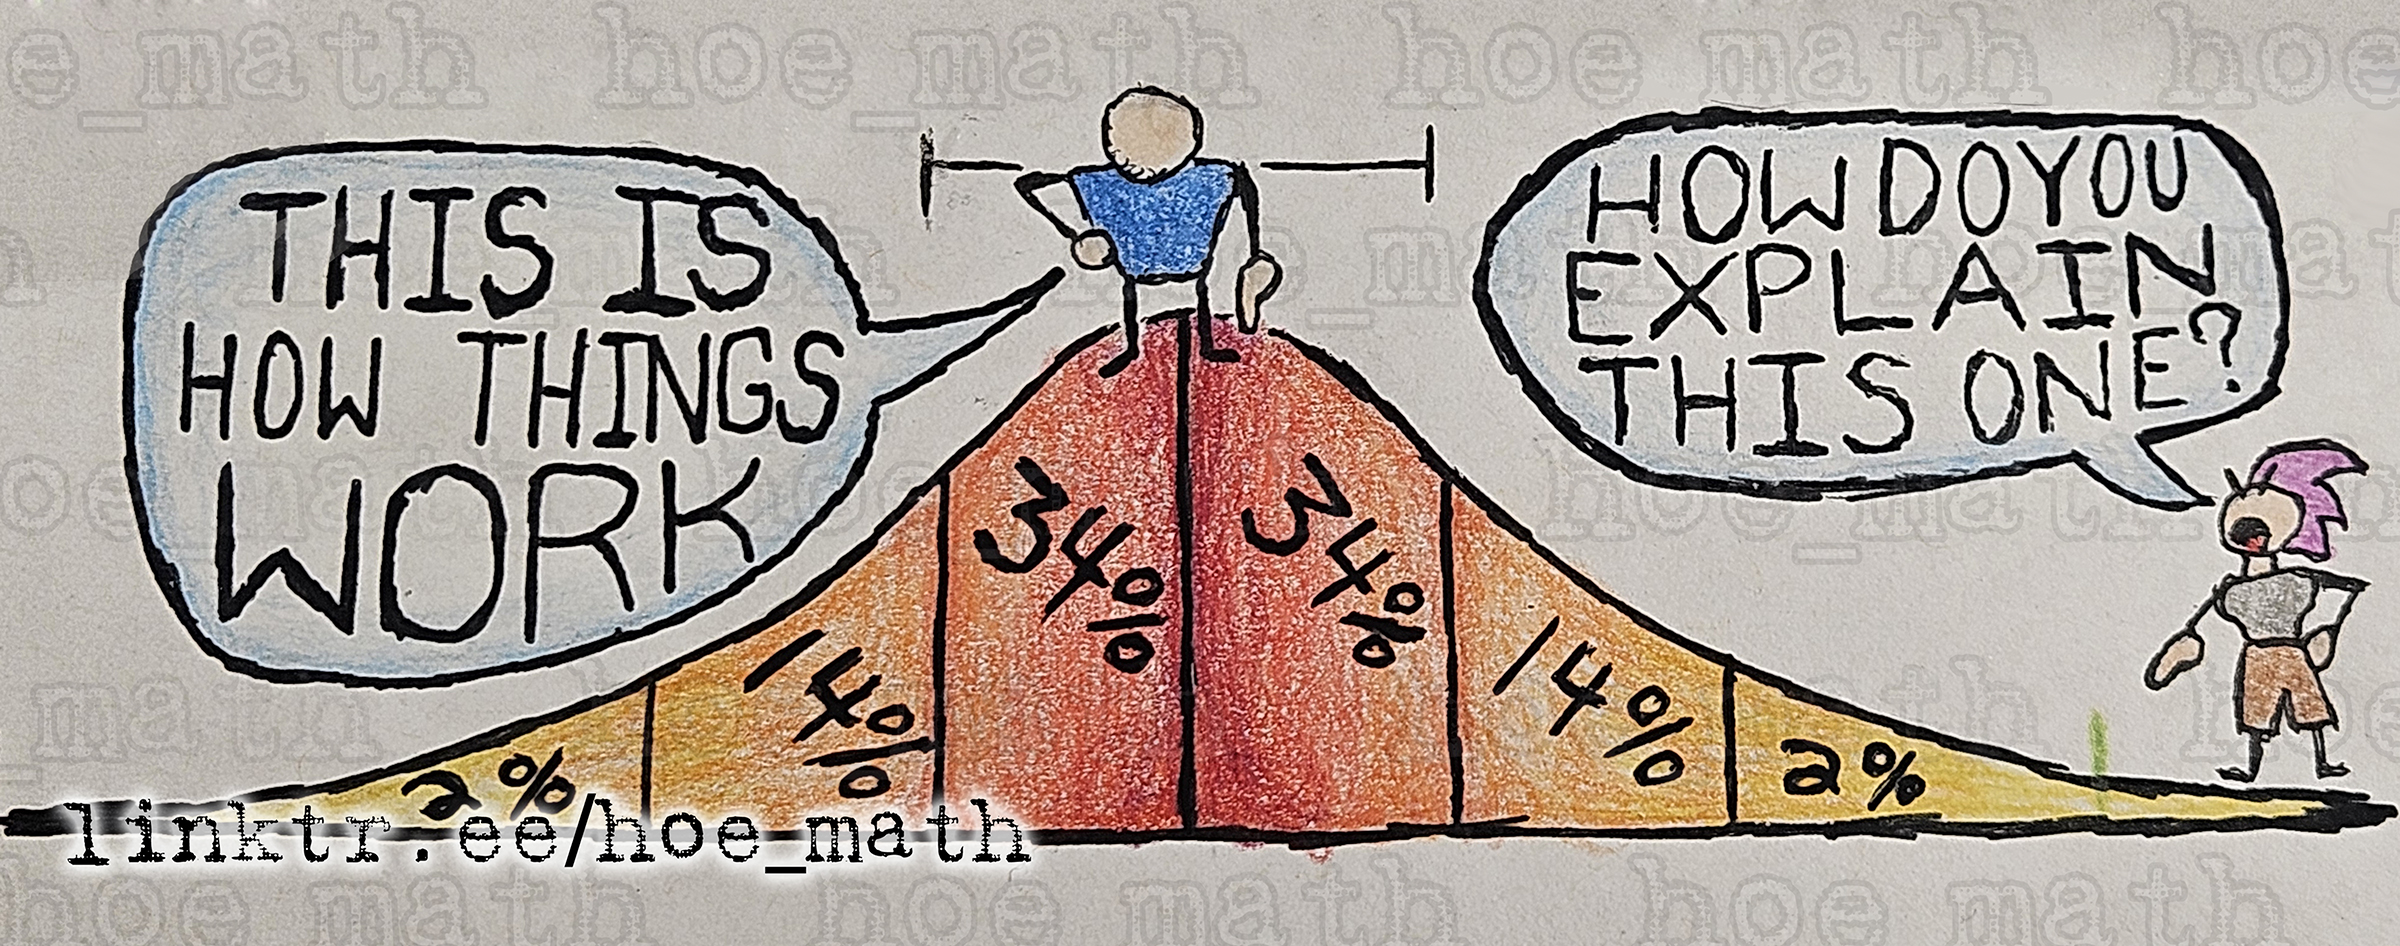 THIS IS
HOW THINGS
WORK
HOW DO YOU
EXPLAIN
THIS ONE?
2%
14%
34%
34%
14%
2%
linktr.ee/hoe_math
e_math hoe_math hoe_math hoe
hoe_math
hoe_math